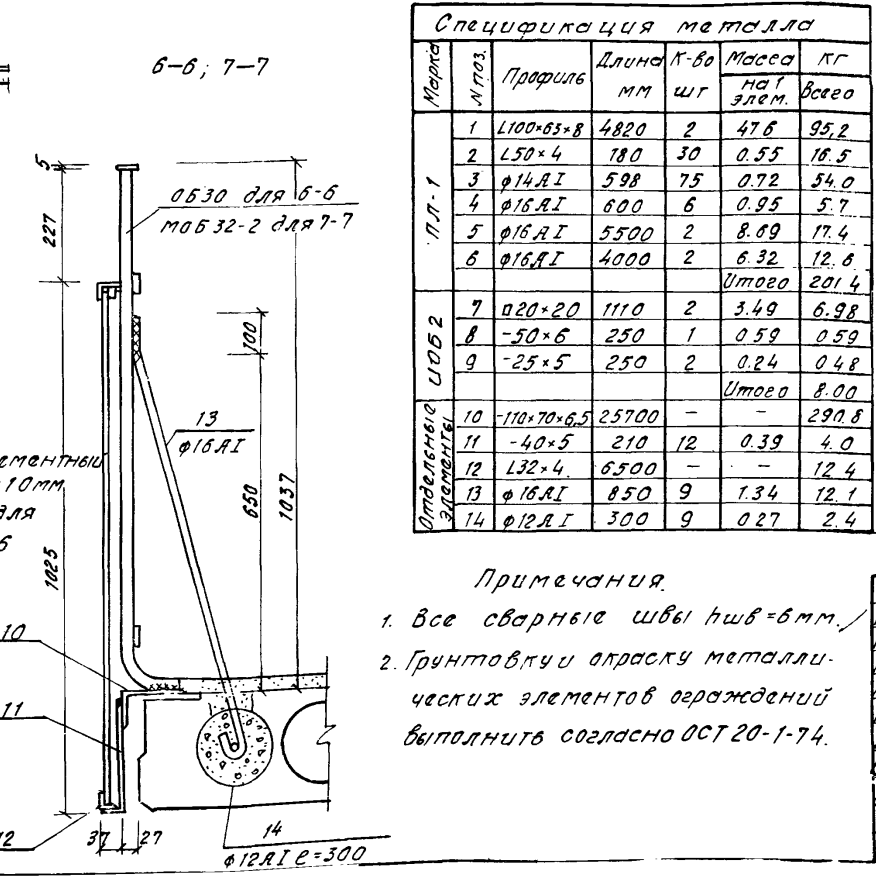 6-6; 7-7
5
227
1025
ОБ30 для 6-6
моб 32-2 для 7-7
100
650
1037
13
ф16АI
10мм
для
6
10
11
12
37 27
14
ф12АI ℓ=300
Спецификация металла
Марка N поз. Профиль Длина мм К-во шт Масса кг
на 1 элем. Всего
ПЛ-1
1 L100×63×8 4820 2 47.6 95,2
2 L50×4 180 30 0.55 16.5
3 ф14АI 598 75 0.72 54.0
4 ф16АI 600 6 0.95 5.7
5 ф16АI 5500 2 8.69 17.4
6 ф16АI 4000 2 6.32 12.6
Итого 201.4
ЦОБ 2
7 □20×20 1110 2 3.49 6.98
8 -50×6 250 1 0.59 0.59
9 -25×5 250 2 0.24 0.48
Итого 8.00
Отдельные элементы
10 -110×70×6,5 25700 - - 290.8
11 -40×5 210 12 0.39 4.0
12 L32×4 6500 - - 12.4
13 ф16АI 850 9 1.34 12.1
14 ф12АI 300 9 0.27 2.4
Примечания.
1. Все сварные швы hшв=6мм.
2. Грунтовку и окраску металли-
ческих элементов ограждений
выполнить согласно ОСТ 20-1-74.